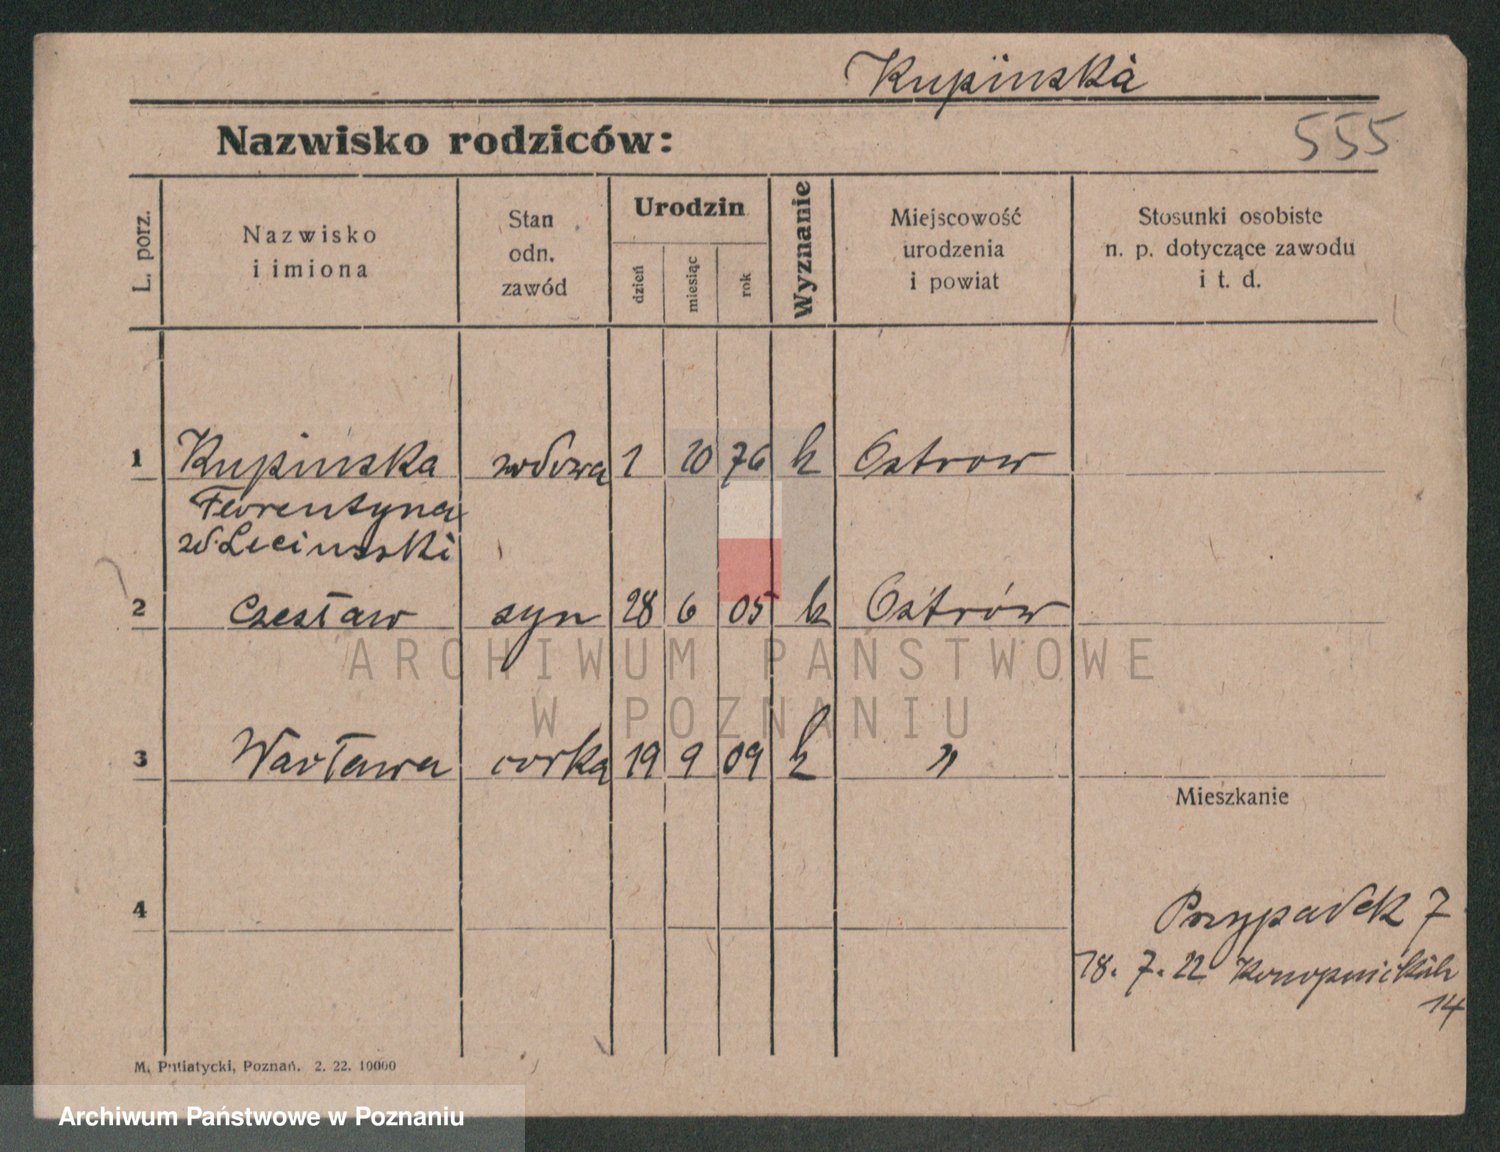 Kupinska
Nazwisko rodziców:
555
L. porz.
Nazwisko
i imiona
Stan
odn.
zawód
Urodzin
dzień
miesiąc
rok
Wyznanie
Miejscowość
urodzenia
i powiat
Stosunki osobiste
n. p. dotyczące zawodu
i t. d.
1 Kupinska wdowa 1 10 76 k Ostrow
Florentyna
2 Czesław syn 28 6 05 k Ostrów
ARCHIWUM PAŃSTWOWE
W POZNANIU
3 Wacława corka 19 9 09 k "
Mieszkanie
4
Przypadek 7
18. 7. 22
14
M. Putiatycki, Poznań. 2. 22. 10000
Archiwum Państwowe w Poznaniu